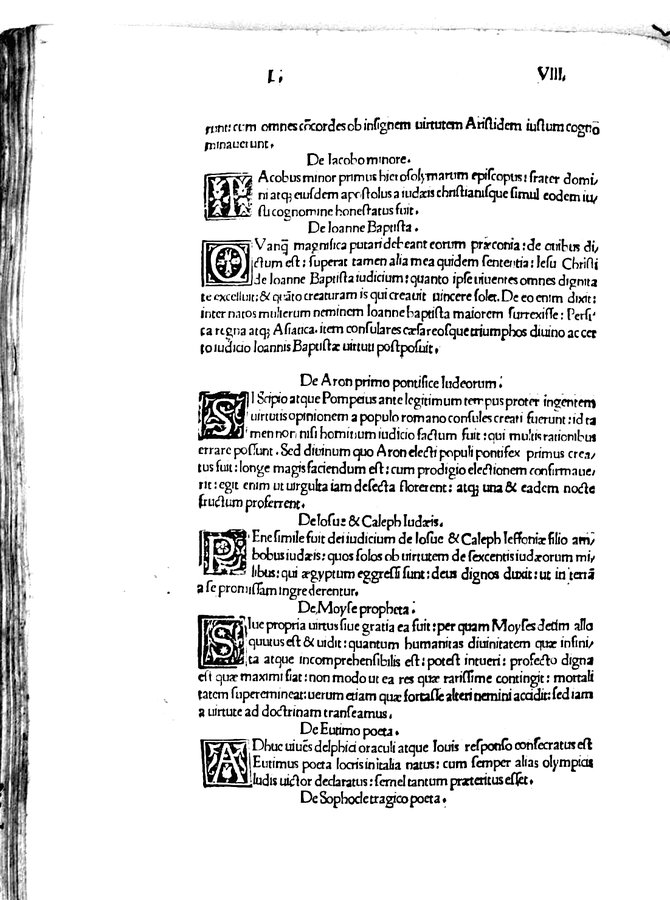 L. VIII.
runt: cum omnes cōcordes ob insignem uirtutem Aristidem iustum cogno
minauerunt.
De Iacobo minore.
IAcobus minor primus hierosolymarum episcopus: frater domi/
ni atq; eiusdem apostolus a iudæis christianisque simul eodem iu/
sti cognomine honestatus fuit.
De Ioanne Baptista.
QVanq̄ magnifica putari debeant eorum præconia: de quibus di/
ctum est: superat tamen alia mea quidem sententia: Iesu Christi
de Ioanne Baptista iudicium: quanto ipse uiuentes omnes dignita
te excelluit: & quāto creaturam is qui creauit uincere solet. De eo enim dixit:
inter natos mulierum neminem Ioanne baptista maiorem surrexisse: Persi/
ca regna atq; Asiatica. item consulares cæsareosque triumphos diuino ac cer
to iudicio Ioannis Baptistæ uirtuti postposuit.
De Aron primo pontifice Iudeorum.
SI Scipio atque Pompeius ante legitimum tempus propter ingentem
uirtutis opinionem a populo romano consules creati fuerunt: id ta
men non nisi hominum iudicio factum fuit: qui multis rationibus
errare possunt. Sed diuinum quo Aron electi populi pontifex primus crea/
tus fuit: longe magis faciendum est: cum prodigio electionem confirmaue/
rit: egit enim ut uirgulta iam desecta florerent: atq; una & eadem nocte
fructum proferrent.
De Iosue & Caleph Iudæis.
PEne simile fuit dei iudicium de Iosue & Caleph Ieffoniæ filio am/
bobus iudæis: quos solos ob uirtutem de sexcentis iudæorum mi/
libus: qui ægyptum egressi sunt: deus dignos duxit: ut in terrā
a se promissam ingrederentur.
De Moyse propheta.
SIue propria uirtus siue gratia ea fuit: per quam Moyses deum allo
quutus est & uidit: quantum humanitas diuinitatem quæ infini/
ta atque incomprehensibilis est: potest intueri: profecto digna
est quæ maximi fiat: non modo ut ea res quæ rarissime contingit: mortali
tatem superemineat: uerum etiam quæ fortasse alteri nemini accidit: sed iam
a uirtute ad doctrinam transeamus.
De Eutimo poeta.
ADhuc uiuēs delphici oraculi atque Iouis responso consecratus est
Eutimus poeta locris in italia natus: cum semper alias olympicis
ludis uictor declaratus: semel tantum præteritus esset.
De Sophocle tragico poeta.